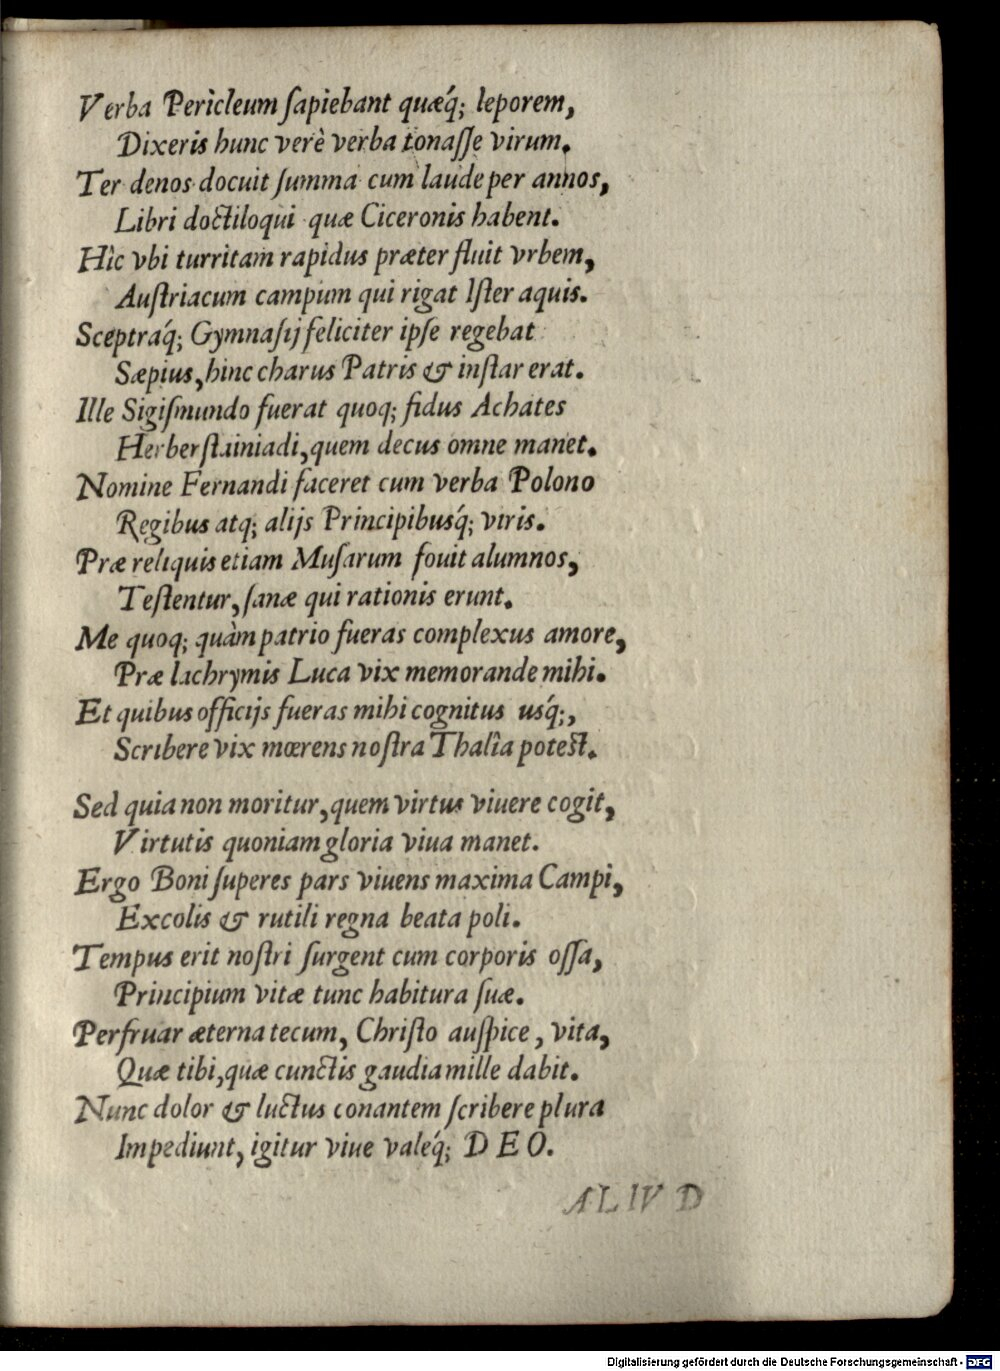 Verba Pericleum ſapiebant quæq́; leporem,
Dixeris hunc verè verba tonaſſe virum.
Ter denos docuit ſumma cum laude per annos,
Libri doctiloqui quæ Ciceronis habent.
Hìc vbi turritam rapidus præterfluit vrbem,
Auſtriacum campum qui rigat Iſter aquis.
Sceptraq́; Gymnaſij feliciter ipſe regebat
Sæpius, hinc charus Patris & inſtar erat.
Ille Sigiſmundo fuerat quoq; fidus Achates
Herberſtainiadi, quem decus omne manet.
Nomine Fernandi faceret cum verba Polono
Regibus atq; alijs Principibusq́; viris.
Præ reliquis etiam Muſarum fouit alumnos,
Teſtentur, ſanæ qui rationis erunt.
Me quoq; quàm patrio fueras complexus amore,
Præ lachrymis Luca vix memorande mihi.
Et quibus officijs fueras mihi cognitus usq́;,
Scribere vix mœrens noſtra Thalìa poteſt.
Sed quia non moritur, quem virtus viuere cogit,
Virtutis quoniam gloria viua manet.
Ergo Boni ſuperes pars viuens maxima Campi,
Excolis & rutili regna beata poli.
Tempus erit noſtri ſurgent cum corporis oſſa,
Principium vitæ tunc habitura ſuæ.
Perfruar æterna tecum, Chriſto auſpice, vita,
Quæ tibi, quæ cunctis gaudia mille dabit.
Nunc dolor & luctus conantem ſcribere plura
Impediunt, igitur viue valeq́; DEO.
ALIVD
Digitalisierung gefördert durch die Deutsche Forschungsgemeinschaft - DFG